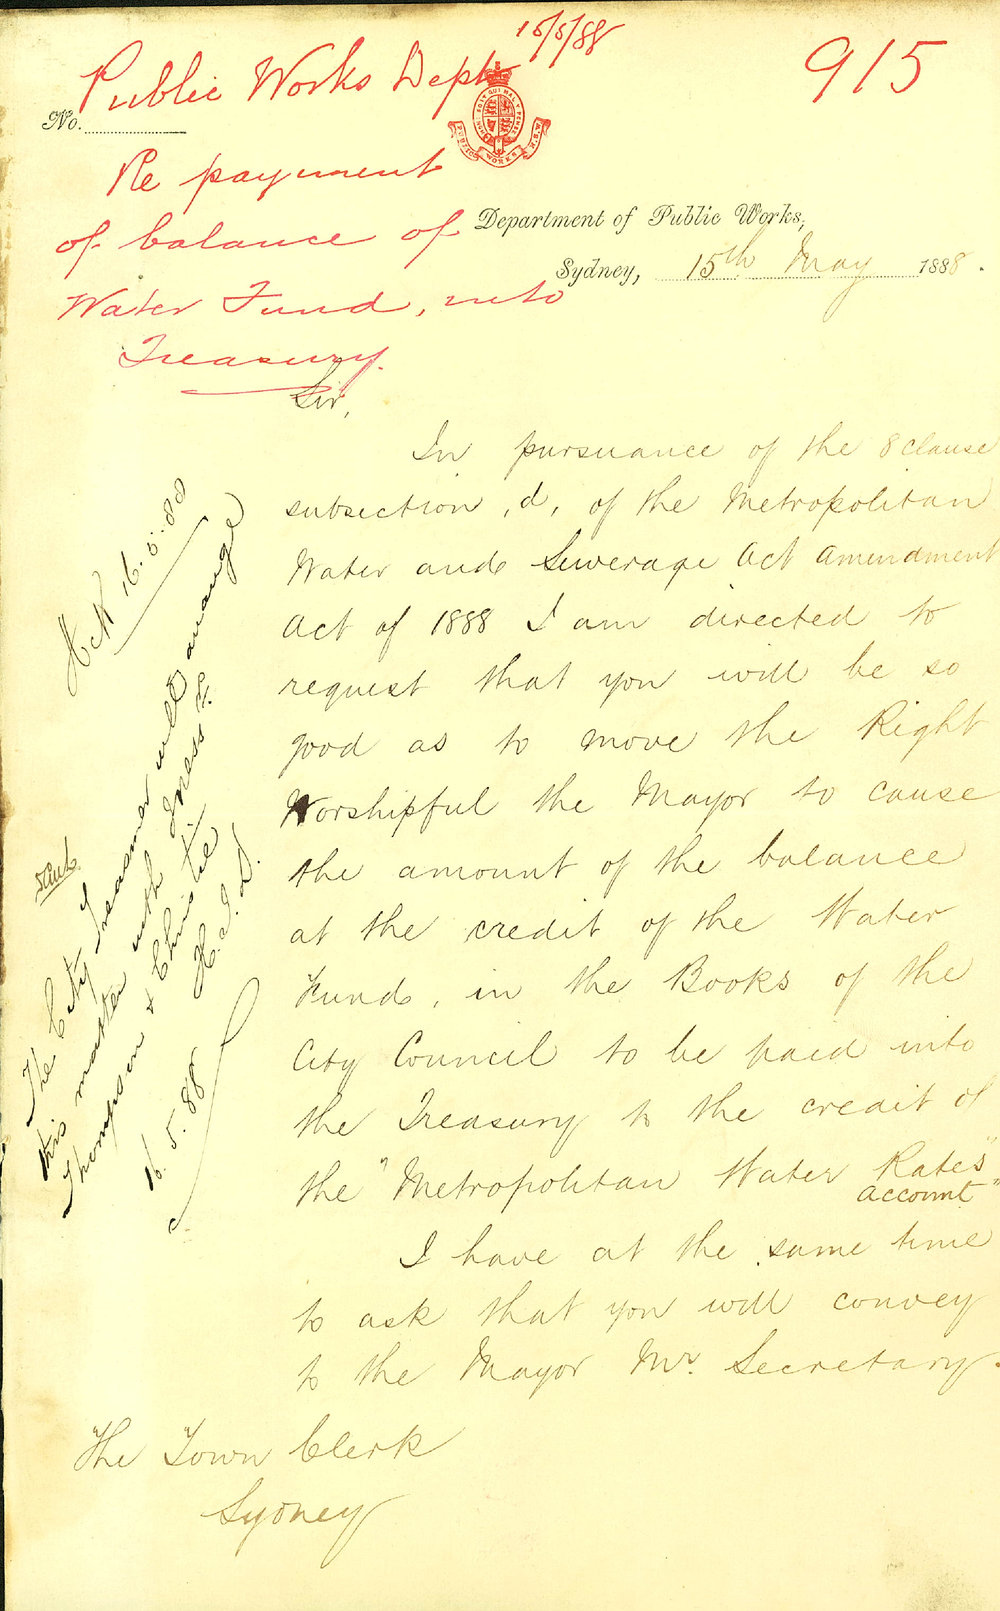 15/5/88
Public Works Dept
915
No.
HONI SOIT QUI MAL Y PENSE
PUBLIC WORKS N.S.W.
Re payment
of balance of
Water Fund, into
Treasury.
Department of Public Works,
Sydney, 15th May 1888.
Sir,
In pursuance of the 8 clause
subsection, d, of the Metropolitan
Water and Sewerage Act Amendment
Act of 1888 I am directed to
request that you will be so
good as to move the Right
Worshipful the Mayor to cause
the amount of the balance
at the credit of the Water
Fund, in the Books of the
City Council to be paid into
the Treasury to the credit of
the "Metropolitan Water Rates"
Account"
I have at the same time
to ask that you will convey
to the Mayor Mr. Secretary
The Town Clerk
Sydney
Ack 16.5.88
The City Treasurer will arrange
this matter with
Thompson & Christie
16.5.88